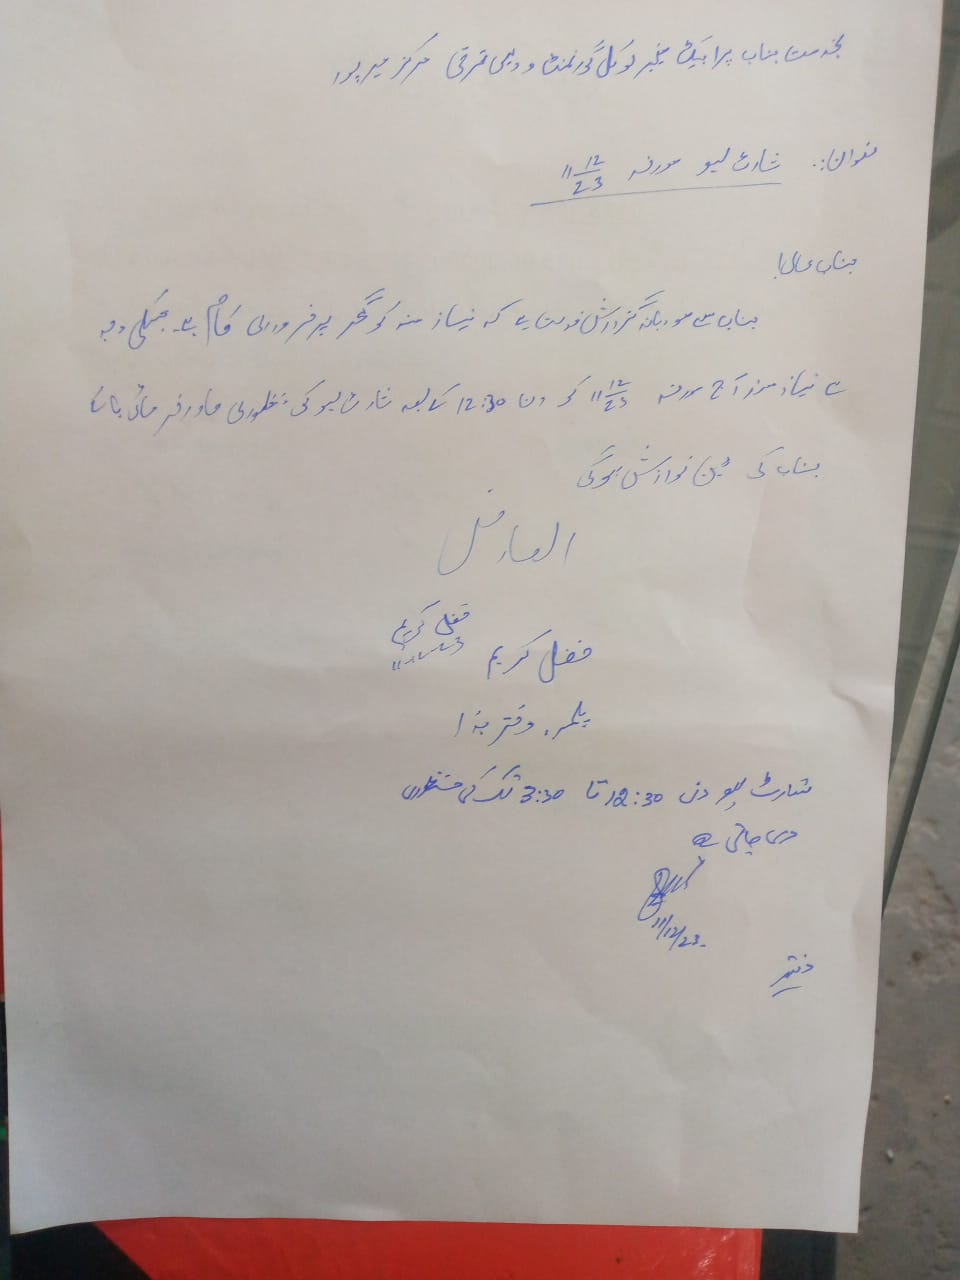 بخدمت جناب پراجیکٹ منیجر لوکل گورنمنٹ و دیہی ترقی مرکز میرپور
عنوان:۔ شارٹ لیو مورخہ 11/12/23
جناب عالی!
جناب سے مودبانہ گزارش خدمت ہے کہ نیاز مند کو گھر پر ضروری کام ہے۔ جسکی وجہ
سے نیاز مند آج مورخہ 11/12/23 کو دن 12:30 کے بعد شارٹ لیو کی منظوری صادر فرمائی جائے
جناب کی عین نوازش ہوگی
العارض
فضل کریم
11-12-23
فضل کریم
دفتر ہذا
شارٹ لیو دن 12:30 تا 3:30 تک کی منظوری
دی جاتی ہے
11/12/23.
دفتر